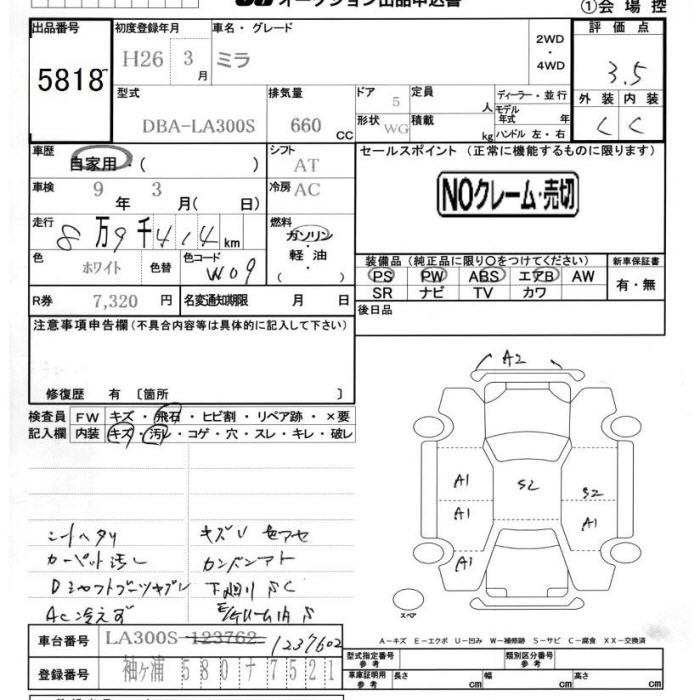 オークション出品申込書
①会場控
出品番号 5818
初度登録年月 H26 3月
車名・グレード ミラ
2WD・4WD
評価点 3.5
外装 内装 C C
型式 DBA-LA300S
排気量 660 CC
ドア 5
形状 WG
定員 人
積載 kg
ディーラー・並行
モデル年式 年
ハンドル 左・右
車歴 自家用・( )
シフト AT
セールスポイント (正常に機能するものに限ります)
車検 9年 3月( 日)
冷房 AC
NOクレーム・売切
走行 8万9千414km
燃料 ガソリン・軽油・( )
色 ホワイト 色替
色コード W09
装備品 (純正品に限り○をつけてください)
PS PW ABS エアB AW
SR ナビ TV カワ
新車保証書 有・無
R券 7,320円
名変通知期限 月 日
後日品
注意事項申告欄(不具合内容等は具体的に記入して下さい)
修復歴 有 〔箇所 〕
検査員 FW キズ・飛石・ヒビ割・リペア跡・×要
記入欄 内装 キズ・汚レ・コゲ・穴・スレ・キレ・破レ
A2
A1
S2
S2
A1
A1
A1
スペア
シートヘタリ
カーペット汚レ
Dシャフトブーツキブレ
AC冷えず
キズU
A-キズ E-エクボ U-凹み W-補修跡 S-サビ C-腐食 XX-交換済
車台番号 LA300S-123762 1237602
登録番号 袖ヶ浦 580 ナ 7521
型式指定番号 参考
類別区分番号 参考
車庫証明用 参考 長さ cm 幅 cm 高さ cm